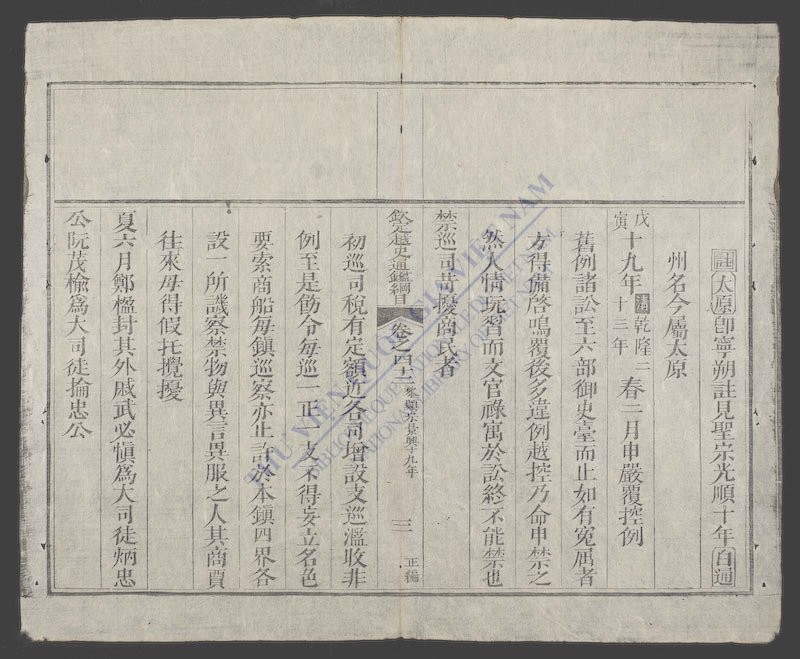 註太原即寧朔註見聖宗光順十年白通
州名今屬太原
戊寅十九年清乾隆二十三年春二月申嚴覆控例
舊例諸訟至六部御史臺而止如有冤屈者
方得備啓鳴覆後多違例越控乃命申禁之
然人情玩習而文官祿寓於訟終不能禁也
禁巡司苛擾商民者
欽定越史通鑑綱目 卷之四十二 黎顯宗景興十九年 三 正編
初巡司稅有定額近各司增設支巡濫收非
例至是飭令每巡一正一支不得妄立名色
要索商船每鎮巡察亦止許於本鎮四界各
設一所譏察禁物與異言異服之人其商賈
往來毋得假托攪擾
夏六月鄭楹封其外戚武必慎爲大司徒炳忠
公阮茂㮋爲大司徒掄忠公
THƯ VIỆN QUỐC GIA VIỆT NAM
BIBLIOTHÈQUE NATIONALE DU VIETNAM
NATIONAL LIBRARY OF VIETNAM